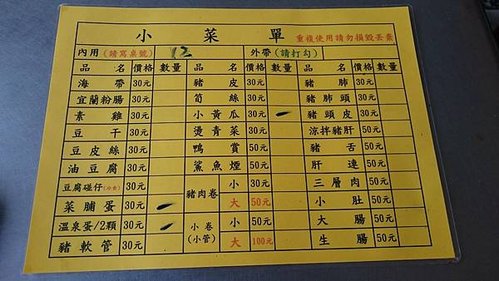 小菜單 重複使用請勿損毀丟棄
內用(請寫桌號) 12 外帶(請打勾)
品名 價格 數量 品名 價格 數量 品名 價格 數量
海帶 30元 豬皮 30元 豬肺 30元
宜蘭粉腸 30元 筍絲 30元 豬肺頭 30元
素雞 30元 小黃瓜 30元 豬頭皮 30元
豆干 30元 燙青菜 30元 涼拌豬肝 30元
豆皮絲 30元 鴨賞 50元 豬舌 50元
油豆腐 30元 鯊魚煙 50元 肝連 50元
豆腐碰仔(冷食) 30元 豬肉卷 小 30元 三層肉 50元
菜脯蛋 30元 大 50元 小肚 50元
溫泉蛋/2顆 30元 小卷(小管) 小 50元 大腸 50元
豬軟管 30元 大 100元 生腸 50元